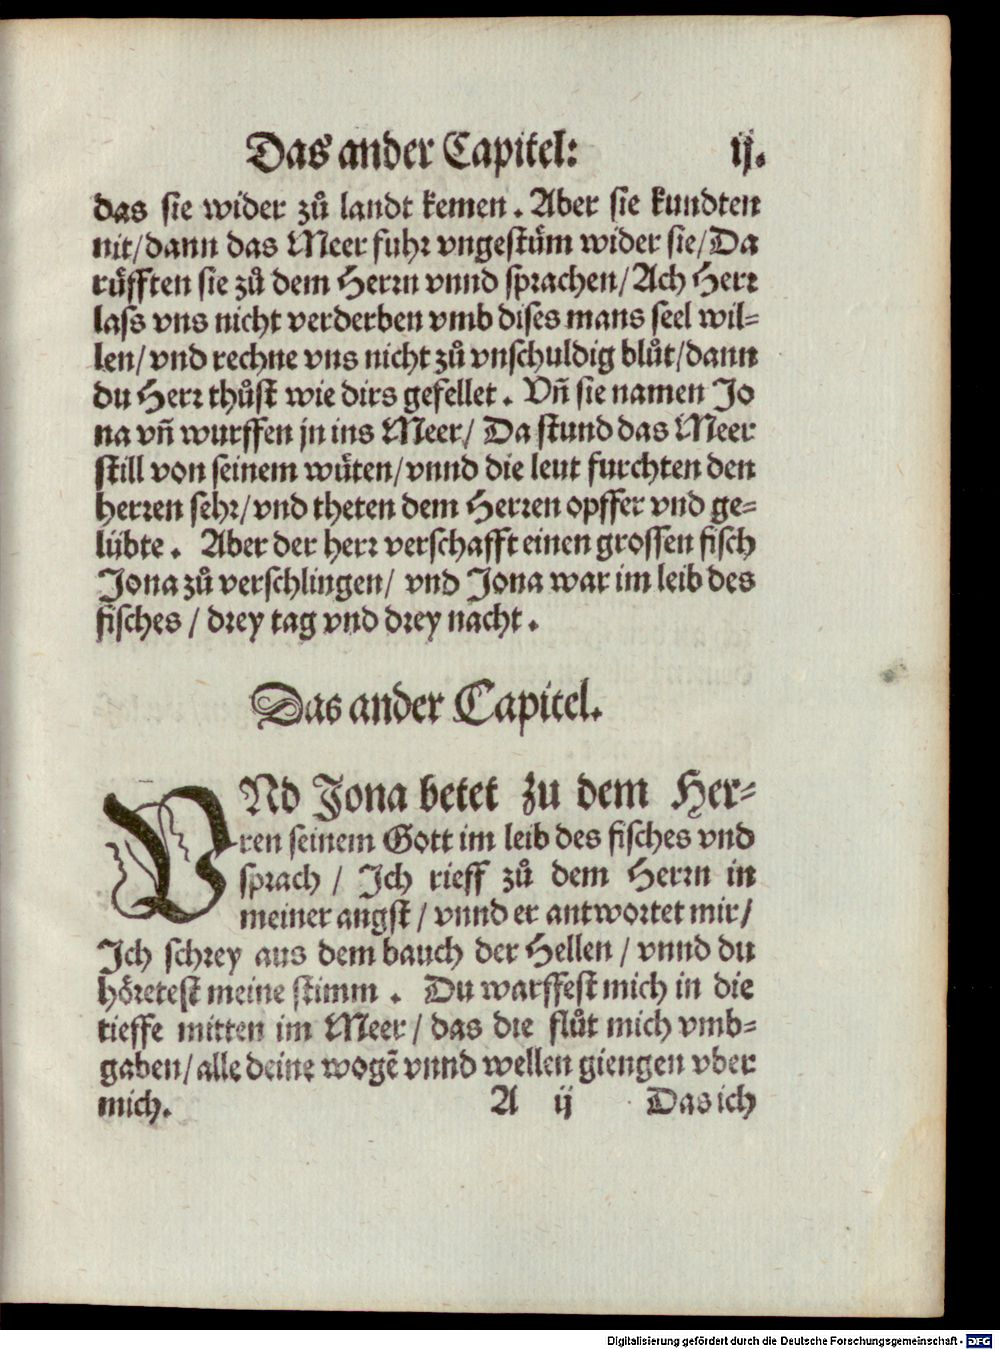 Das ander Capitel: ij.
das sie wider zuͦ landt kemen. Aber sie kundten
nit/dann das Meer fuhr vngestuͤm wider sie/Da
ruͤfften sie zuͦ dem Herrn vnnd sprachen/Ach Herr
lass vns nicht verderben vmb dises mans seel wil⸗
len/vnd rechne vns nicht zuͦ vnschuldig bluͦt/dann
du Herr thuͦst wie dirs gefellet. Vn̄ sie namen Jo
na vn̄ wurffen jn ins Meer/ Da stund das Meer
still von seinem wuͤten/vnnd die leut furchten den
herren sehr/vnd theten dem Herren opffer vnd ge⸗
luͤbte. Aber der herr verschafft einen grossen fisch
Jona zuͦ verschlingen/ vnd Jona war im leib des
fisches / drey tag vnd drey nacht.
Das ander Capitel.
VNd Jona betet zu dem Her⸗
ren seinem Gott im leib des fisches vnd
sprach / Ich rieff zuͦ dem Herrn in
meiner angst / vnnd er antwortet mir/
Ich schrey aus dem bauch der Hellen / vnnd du
hoͤretest meine stimm. Du warffest mich in die
tieffe mitten im Meer / das die fluͦt mich vmb⸗
gaben/alle deine wogē vnnd wellen giengen vber
mich. A ij Das ich
Digitalisierung gefördert durch die Deutsche Forschungsgemeinschaft - DFG